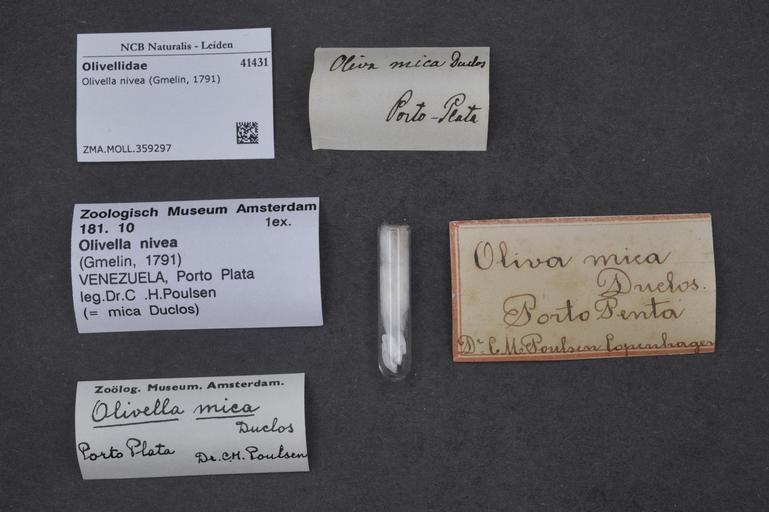 NCB Naturalis - Leiden
Olivellidae 41431
Olivella nivea (Gmelin, 1791)
ZMA.MOLL.359297
Oliva mica Duclos
Porto-Plata
Zoologisch Museum Amsterdam
181. 10 1ex.
Olivella nivea
(Gmelin, 1791)
VENEZUELA, Porto Plata
leg.Dr.C .H.Poulsen
(= mica Duclos)
Oliva mica
Duclos.
Porto Penta
Dr. C. M. Poulsen Copenhagen
Zoölog. Museum. Amsterdam.
Olivella mica
Duclos
Porto Plata Dr. C.M. Poulsen